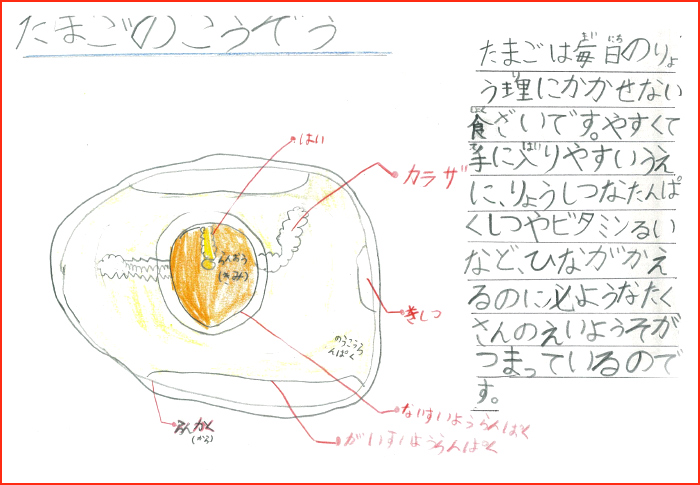 たまごのこうぞう
たまごは毎日のりょ
う理にかかせない
食ざいです。やすくて
手に入りやすいうえ
に、りょうしつなたんぱ
くしつやビタミンるい
など、ひながかえ
るのに必ようなたく
さんのえいようそが
つまっているので
す。
はい
カラザ
らんおう
(きみ)
きしつ
のうこうら
んぱく
ないすいようらんぱく
がいすいようらんぱく
らんかく
(から)